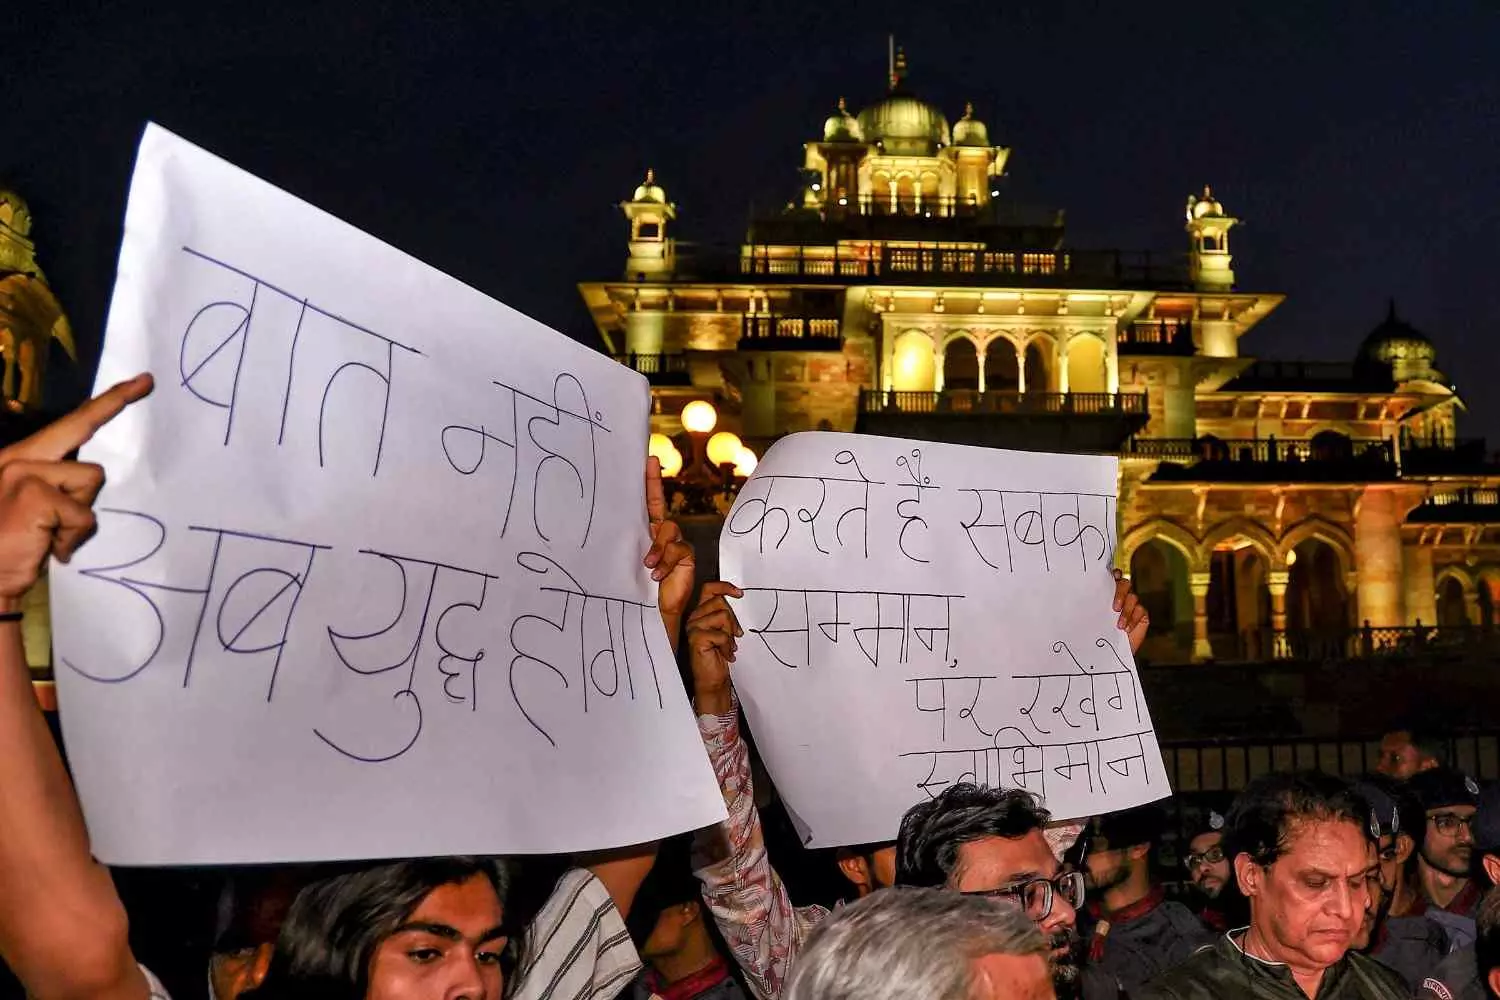 बात नहीं
अब युद्ध होगा
करते हैं सबका
सम्मान,
पर रखेंगे
स्वाभिमान